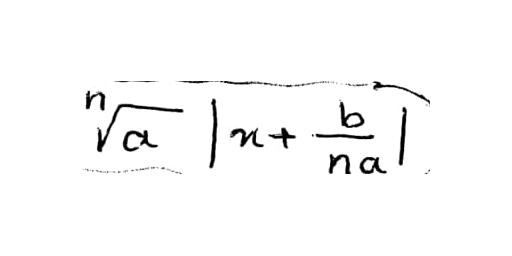 $\sqrt[n]{a} \left| x + \frac{b}{na} \right|$